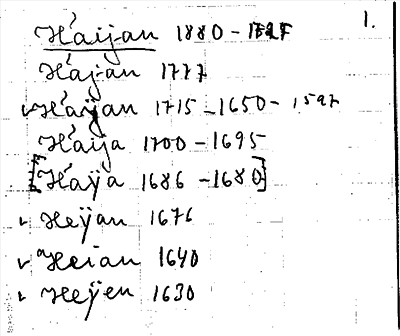 1.
Háijan 1880 - 1727
Hájan 1777
✓ Háijan 1715 - 1650 - 1597
Háija 1700 - 1695
[Háÿa 1686 - 1680]
✓ Heÿan 1676
✓ Heian 1640
✓ Heÿen 1630